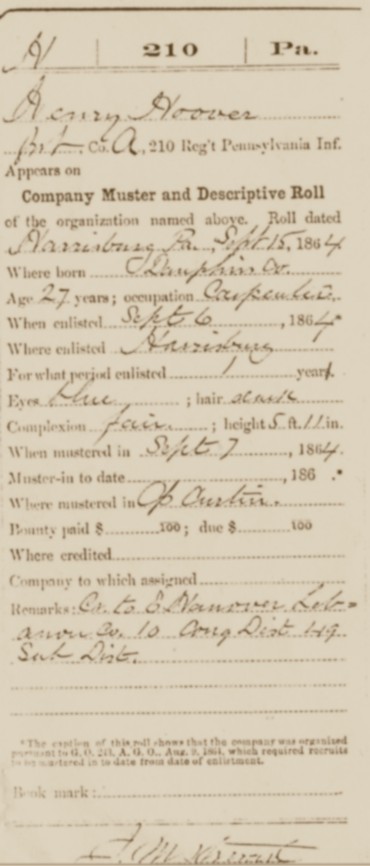 H | 210 | Pa.
Henry Hoover
Pvt., Co. A, 210 Reg't Pennsylvania Inf.
Appears on
Company Muster and Descriptive Roll
of the organization named above. Roll dated
Harrisburg Pa., Sept 15, 1864
Where born Dauphin Co.
Age 27 years; occupation Carpenter
When enlisted Sept 6, 1864
Where enlisted Harrisburg
For what period enlisted 1 years.
Eyes blue; hair dark
Complexion fair; height 5 ft. 11 in.
When mustered in Sept 7, 1864.
Muster-in to date, 186 .*
Where mustered in Cp Curtin.
Bounty paid $ 100; due $ 100
Where credited
Company to which assigned
Remarks: Cr. to E. Hanover Leb=
anon Co. 10 Cong Dist 49
Sub Dist.
*The caption of this roll shows that the company was organized
pursuant to G. O. 243, A. G. O., Aug. 9, 1864, which required recruits
to be mustered in to date from date of enlistment.
Book mark: